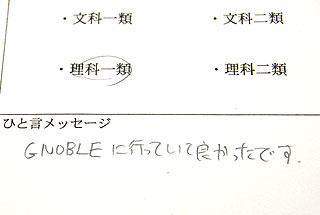 ・文科一類 ・文科二類
・理科一類 ・理科二類
ひと言メッセージ
GNOBLEに行っていて良かったです.